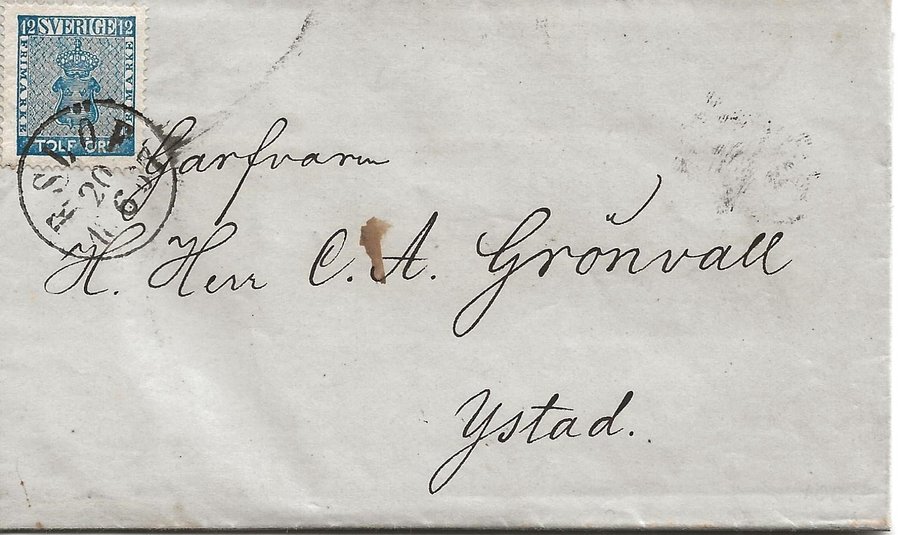 12 SVERIGE 12
FRIMÄRKE
FRIMÄRKE
TOLF ÖRE
20
Garfvaren
H. Herr C. A. Grönvall
Ystad.